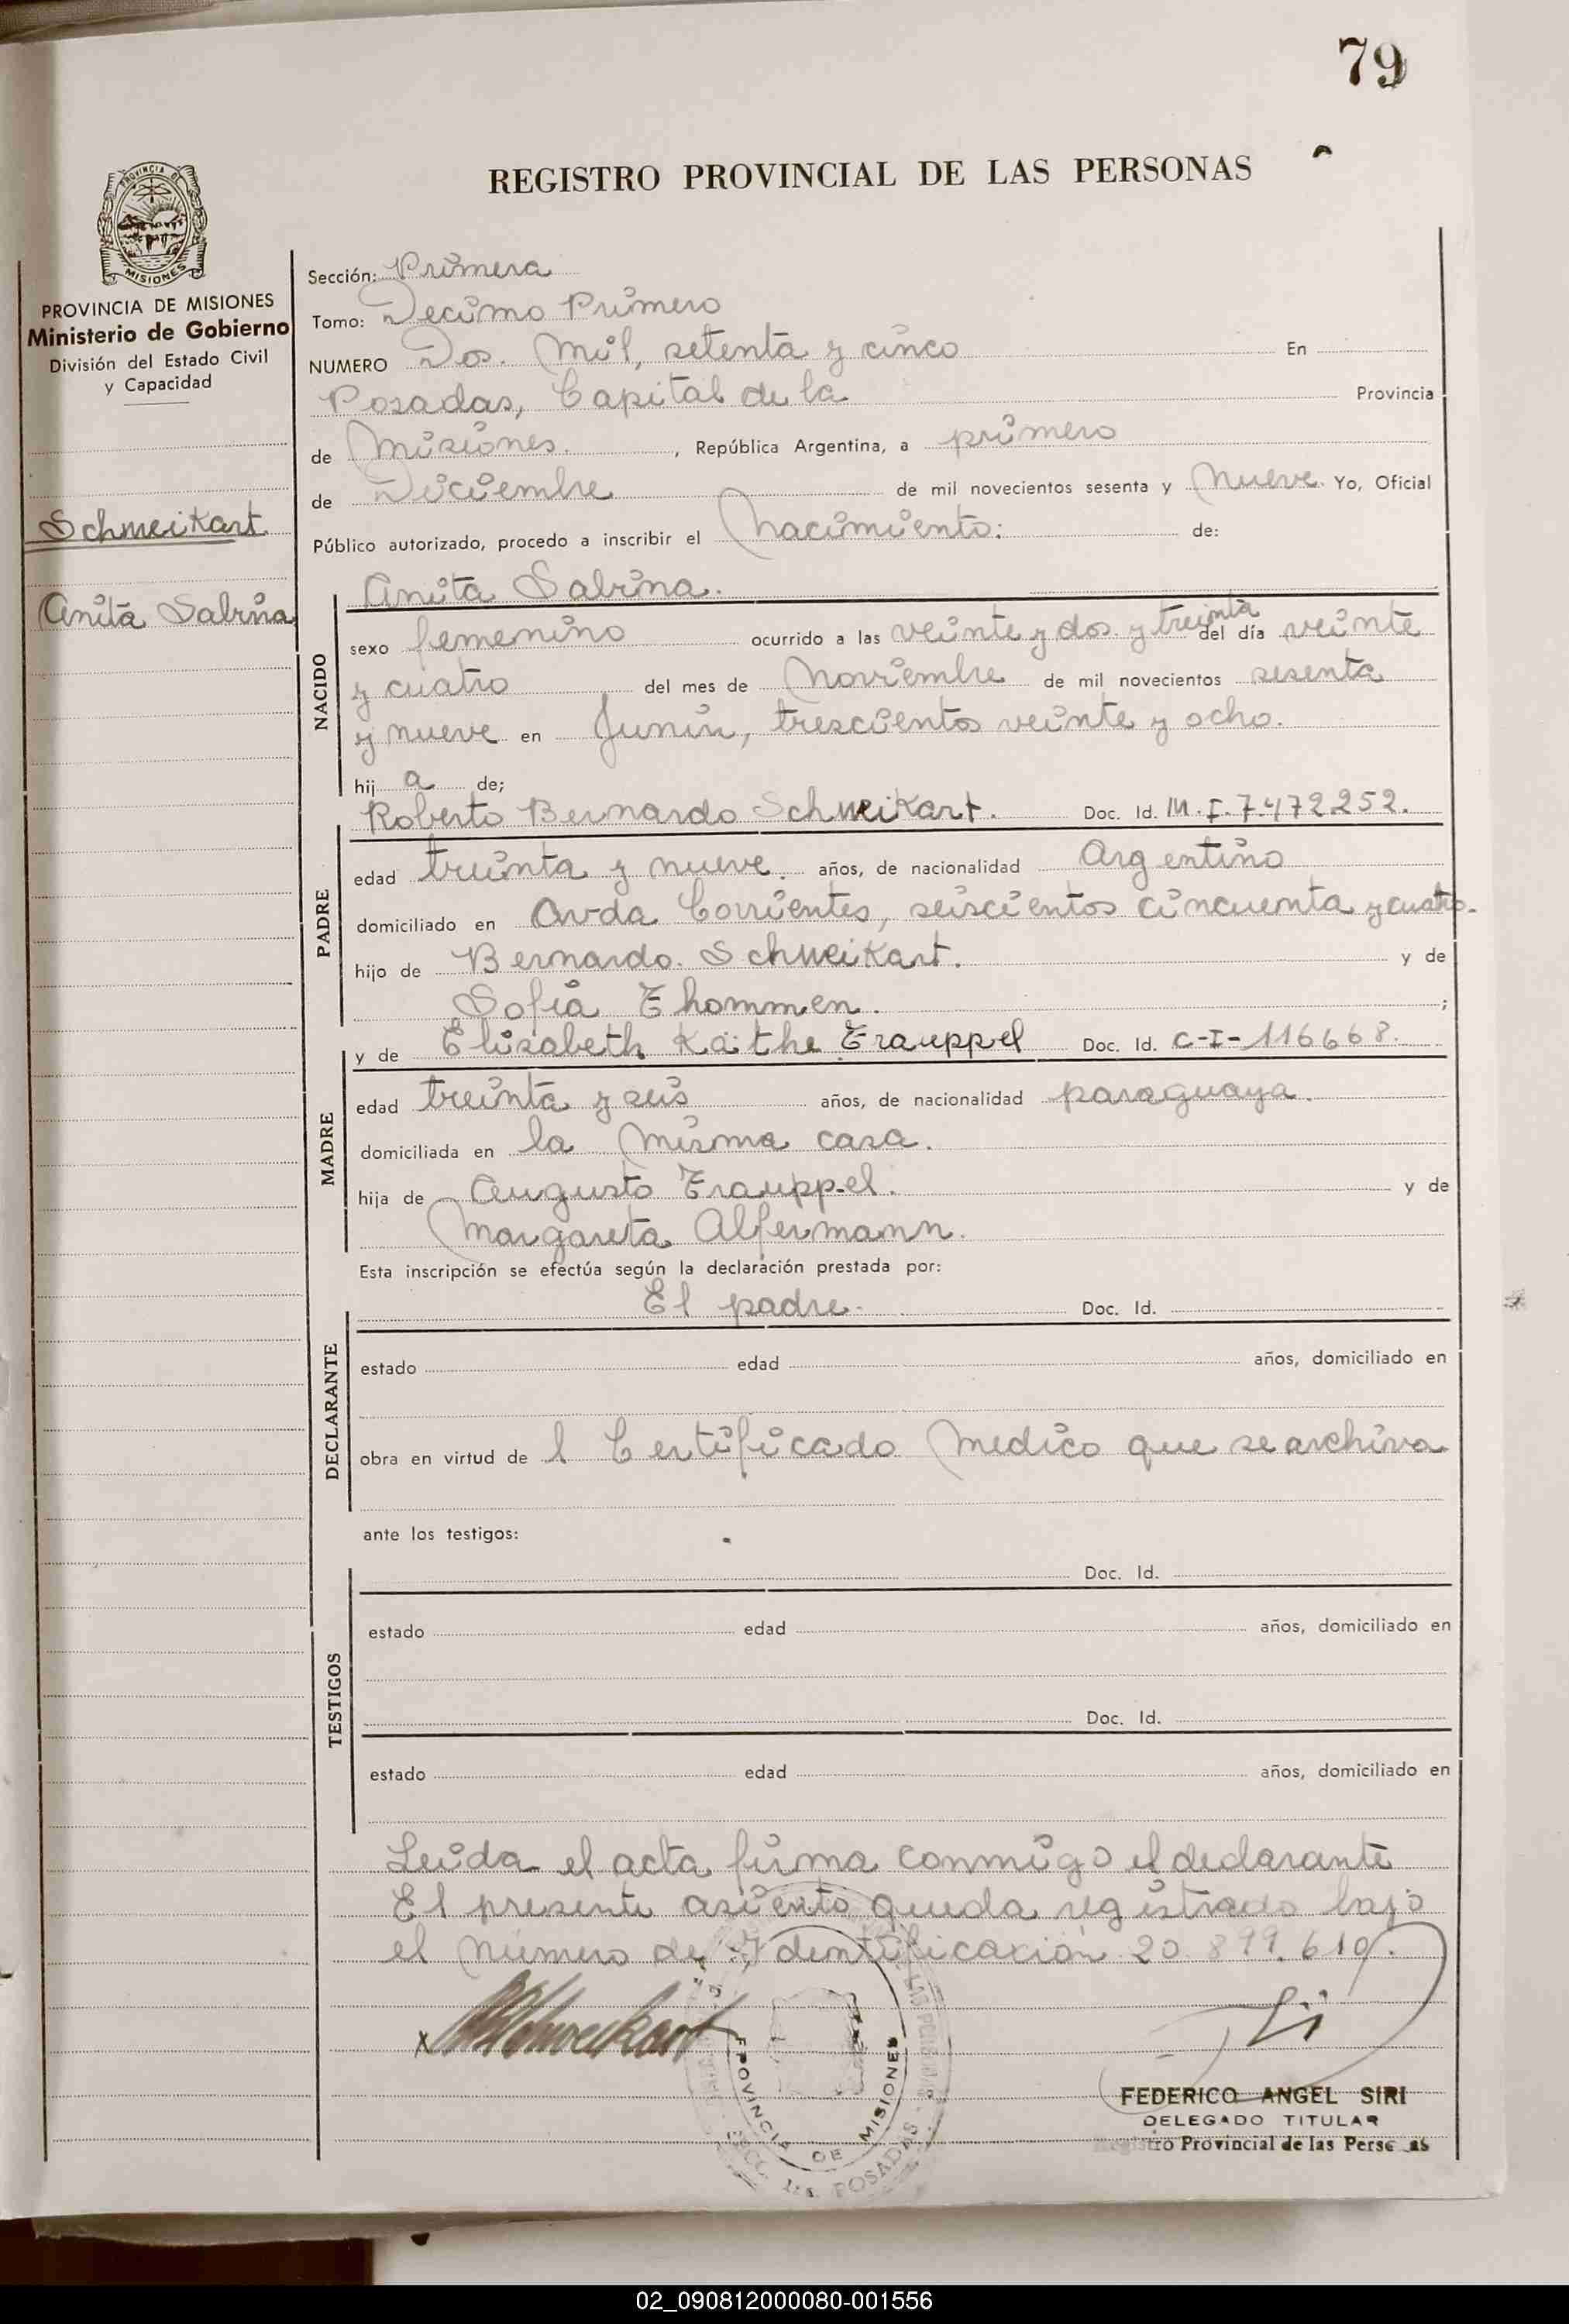 79
REGISTRO PROVINCIAL DE LAS PERSONAS
PROVINCIA DE
MISIONES
PROVINCIA DE MISIONES
Ministerio de Gobierno
División del Estado Civil
y Capacidad
Schweikart
Anita Sabrina
Sección: Primera
Tomo: Decimo Primero
NUMERO Dos. Mil, setenta y cinco En
Posadas, Capital de la Provincia
de Misiones. , República Argentina, a primero
de Diciembre de mil novecientos sesenta y Nueve Yo, Oficial
Público autorizado, procedo a inscribir el Nacimiento: de:
Anita Sabrina.
NACIDO
sexo femenino ocurrido a las veinte y dos y treinta del día veinte
y cuatro del mes de Noviembre de mil novecientos sesenta
y nueve en Junin, trescientos veinte y ocho.
hij a de;
Roberto Bernardo Schweikart. Doc. Id. M.I. 7.472.252.
PADRE
edad treinta y nueve. años, de nacionalidad Argentino
domiciliado en Avda Corrientes, seiscientos cincuenta y cuatro.
hijo de Bernardo. Schweikart. y de
Sofia Thommen. ;
y de Elisabeth Käthe Trauppel Doc. Id. C-I-116668.
MADRE
edad treinta y seis años, de nacionalidad paraguaya.
domiciliada en la misma casa.
hija de Augusto Trauppel. y de
Margareta Alfermann.
Esta inscripción se efectúa según la declaración prestada por:
El padre. Doc. Id.
DECLARANTE
estado edad años, domiciliado en
obra en virtud de l Certificado Medico que se archiva
ante los testigos:
Doc. Id.
TESTIGOS
estado edad años, domiciliado en
Doc. Id.
estado edad años, domiciliado en
Leida el acta firma conmigo el declarante
El presente asiento queda registrado bajo
el número de Identificación 20.899.610.
x Schweikart
PROVINCIA DE MISIONES
POSADAS
FEDERICO ANGEL SIRI
DELEGADO TITULAR
Registro Provincial de las Personas
02_090812000080-001556